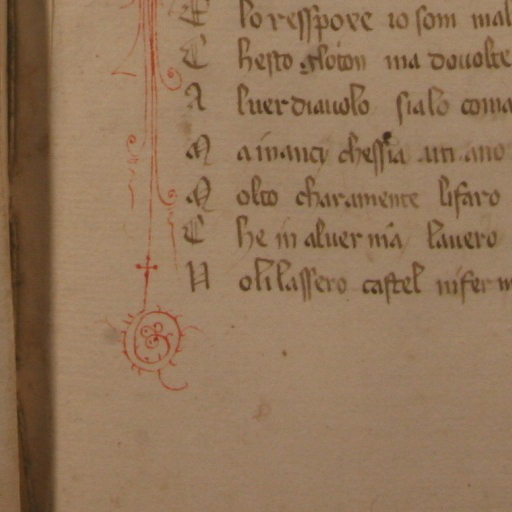 E lo resspoxe io som mal
C hesto gloton ma dovolte
A l ver diavolo sia lo coma
M a inanci chessia
M olto charamente li faro
C he in alver mia lavero
N oli lassero castel ni ferm